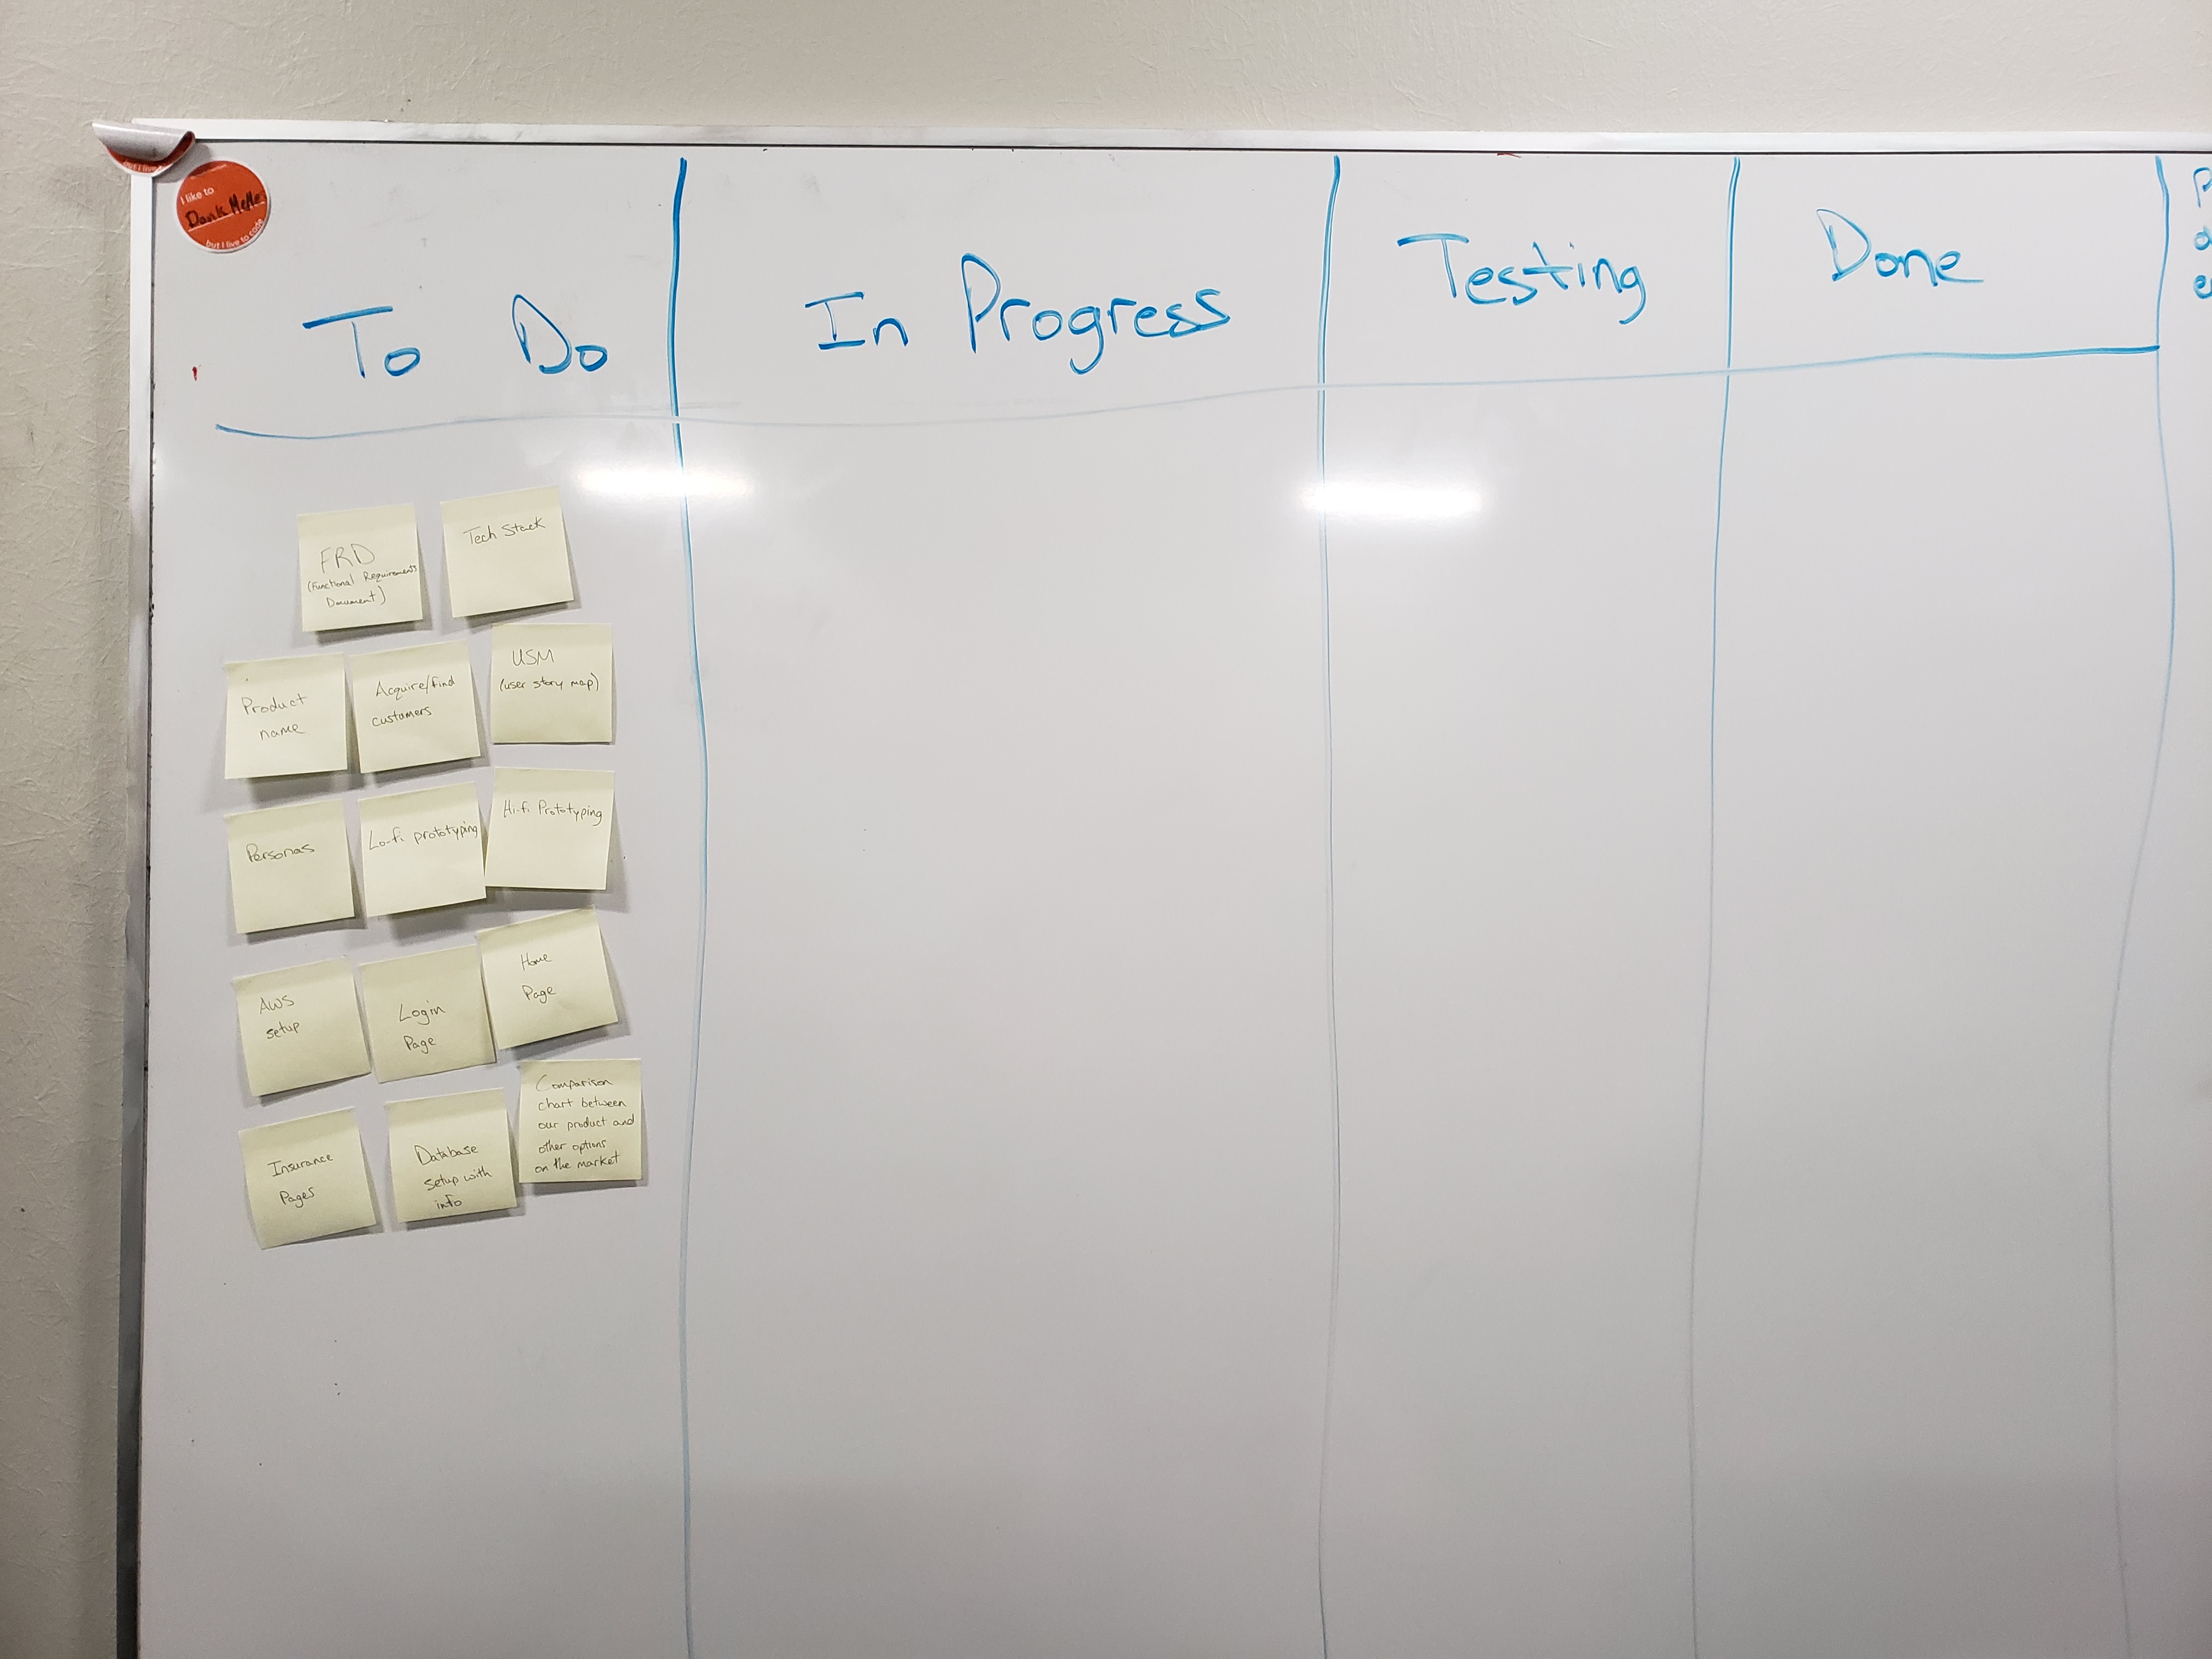 I like to
Dank MeMe
but I live to code
To Do
In Progress
Testing
Done
FRD
(Functional Requirements
Document)
Tech Stack
Product
name
Acquire/find
customers
USM
(user story map)
Personas
Lo-fi prototyping
Hi-fi Prototyping
AWS
setup
Login
Page
Home
Page
Insurance
Pages
Database
setup with
info
Comparison
chart between
our product and
other options
on the market